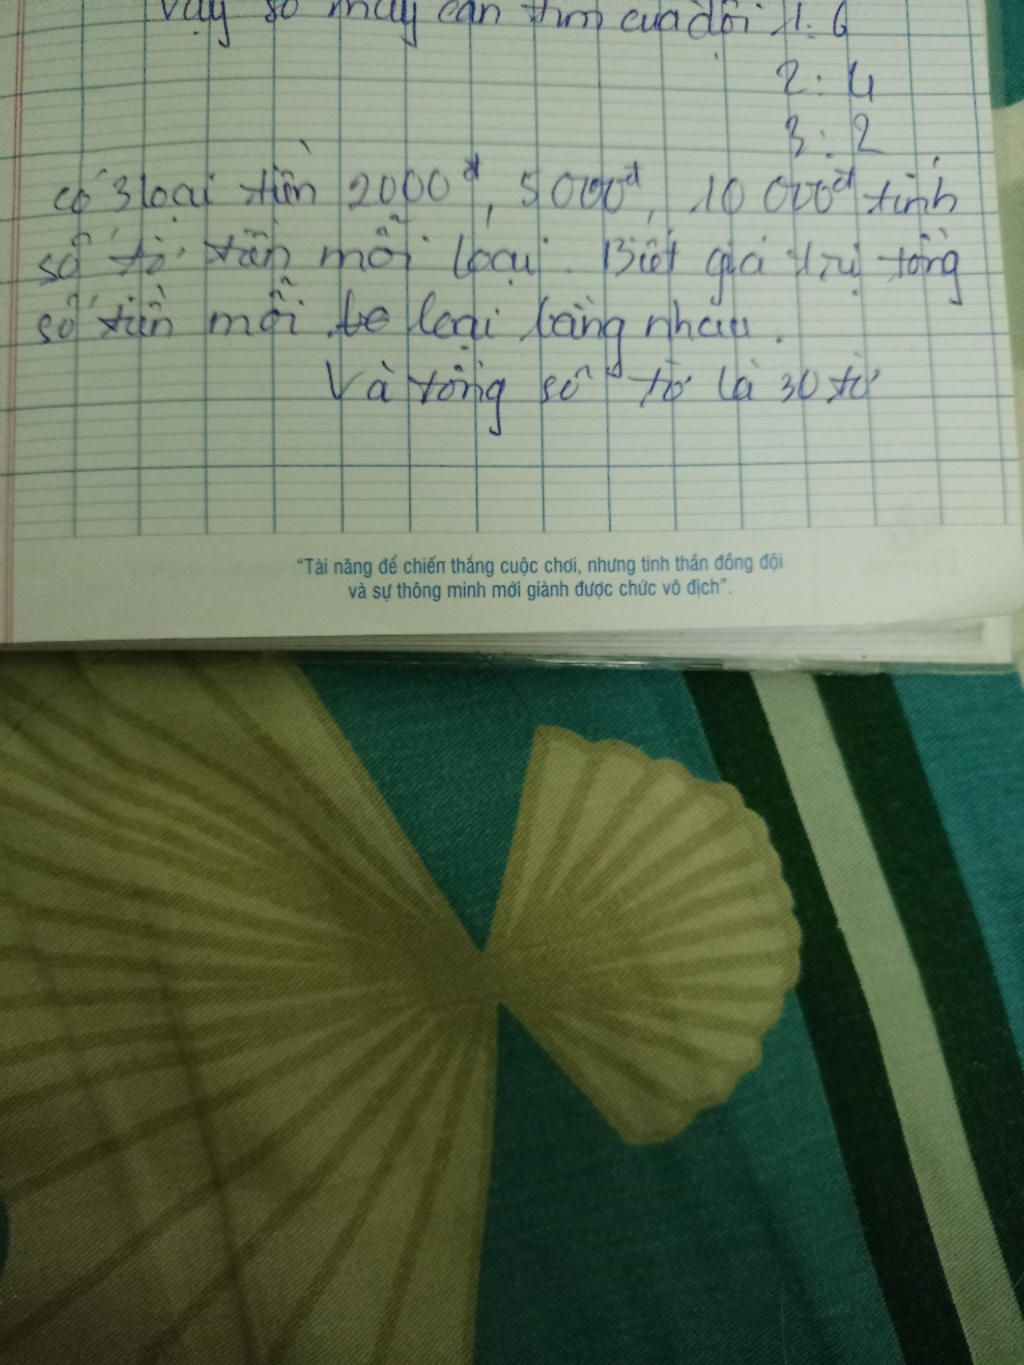 Vậy số máy cần tìm của đội 1: 6
2: 4
3: 2
có 3 loại tiền 2000đ, 5000đ, 10 000đ tính
số tờ tiền mỗi loại. Biết giá trị tổng
số tiền mỗi loại bằng nhau.
Và tổng số tờ là 30 tờ
"Tài năng để chiến thắng cuộc chơi, nhưng tinh thần đồng đội
và sự thông minh mới giành được chức vô địch".